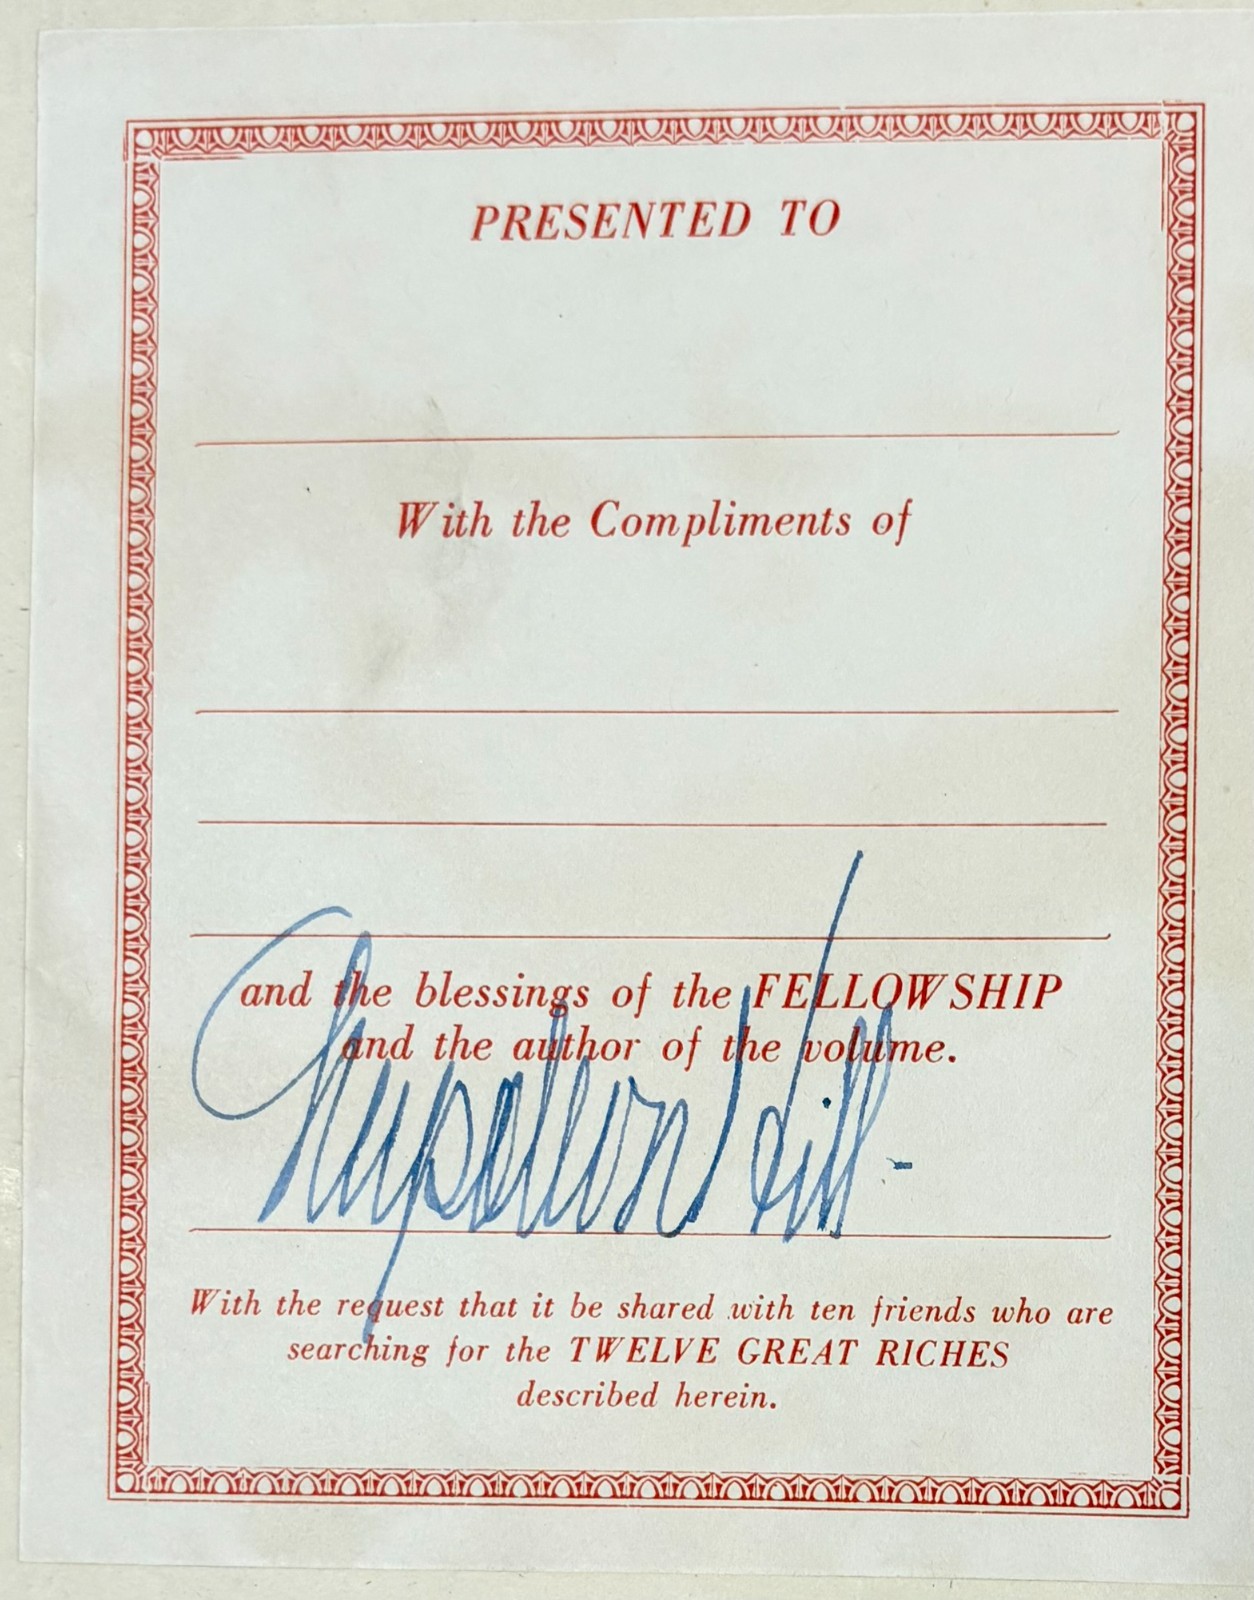 PRESENTED TO
With the Compliments of
and the blessings of the FELLOWSHIP
and the author of the volume.
Napoleon Hill
With the request that it be shared with ten friends who are
searching for the TWELVE GREAT RICHES
described herein.